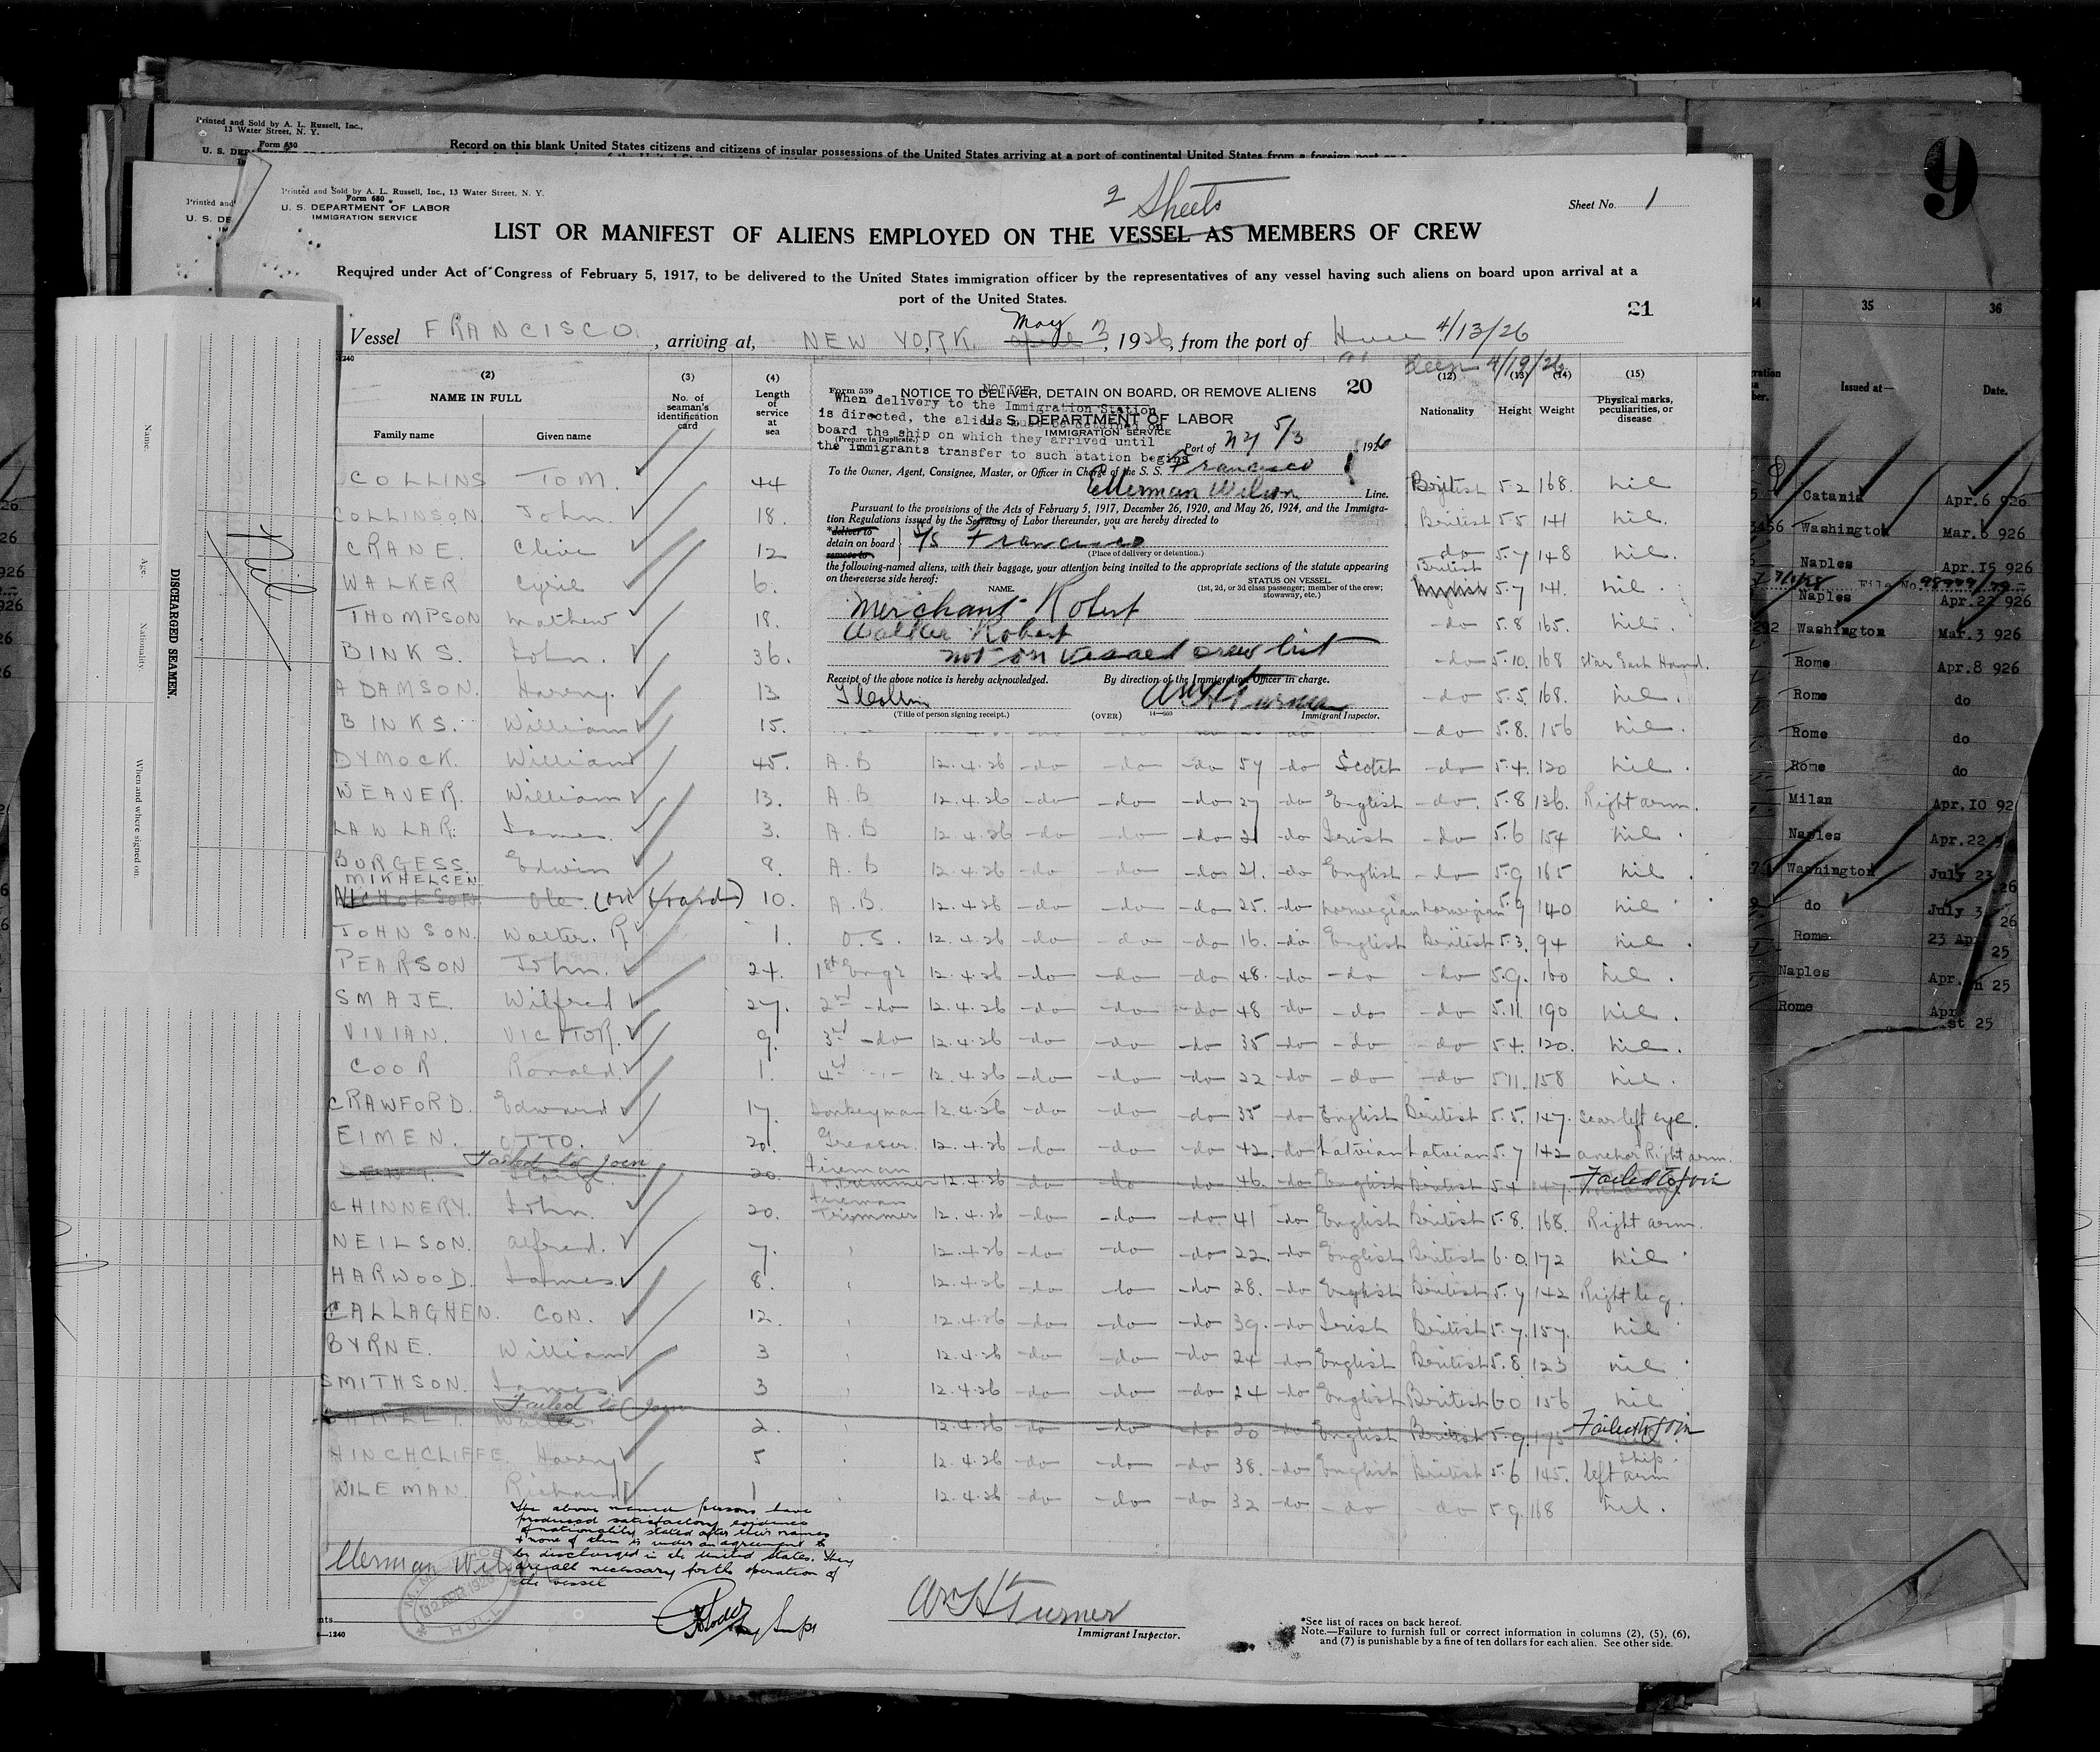 Printed and Sold by A. L. Russell, Inc.,
13 Water Street, N. Y.
Form 630
Record on this blank United States citizens and citizens of insular possessions of the United States arriving at a port of continental United States from a foreign port or a
9
Printed and
U. S. DE
Printed and Sold by A. L. Russell, Inc., 13 Water Street, N. Y.
Form 680
U. S. DEPARTMENT OF LABOR
IMMIGRATION SERVICE
2 Sheets
Sheet No. 1
LIST OR MANIFEST OF ALIENS EMPLOYED ON THE VESSEL AS MEMBERS OF CREW
Required under Act of Congress of February 5, 1917, to be delivered to the United States immigration officer by the representatives of any vessel having such aliens on board upon arrival at a
port of the United States.
21
Vessel FRANCISCO, arriving at, NEW YORK May 3, 1926, from the port of Hull 4/13/26
4/19/26
(2) NAME IN FULL
Family name Given name
(3) No. of seaman's identification card
(4) Length of service at sea
(12) Nationality
(13) Height
(14) Weight
(15) Physical marks, peculiarities, or disease
Form 559 NOTICE TO DELIVER, DETAIN ON BOARD, OR REMOVE ALIENS 20
NOTICE
When delivery to the Immigration Station
is directed, the aliens must be detained on
board the ship on which they arrived until
the immigrants transfer to such station begins
U. S. DEPARTMENT OF LABOR
IMMIGRATION SERVICE
(Prepare in Duplicate.)
Port of NY 5/3, 1926
To the Owner, Agent, Consignee, Master, or Officer in Charge of the S. S. Francisco
Ellerman Wilson Line.
Pursuant to the provisions of the Acts of February 5, 1917, December 26, 1920, and May 26, 1924, and the Immigra-
tion Regulations issued by the Secretary of Labor thereunder, you are hereby directed to
*deliver to
detain on board
remove to
S/S Francisco
(Place of delivery or detention.)
the following-named aliens, with their baggage, your attention being invited to the appropriate sections of the statute appearing
on the reverse side hereof:
NAME.
STATUS ON VESSEL
(1st, 2d, or 3d class passenger; member of the crew;
stowaway, etc.)
Merchant Robert
Walker Robert
not on vessel crew list
Receipt of the above notice is hereby acknowledged. By direction of the Immigration Officer in charge.
WH Turner
(Title of person signing receipt.) (OVER) 14—560 Immigrant Inspector.
COLLINS TOM. 44 British 5.2 168. nil
COLLINSON. John. 18. British 5.5 141 nil.
CRANE. Clive 12 -do- 5.7 148 nil.
WALKER Cyril 6. British 5.7 141. nil.
THOMPSON Mathew 18. -do- 5.8 165. nil.
BINKS. John. 36. -do- 5.10. 168 Star Each Hand.
ADAMSON. Harry. 13 -do- 5.5. 168. nil.
BINKS. William 15. -do- 5.8. 156 nil.
DYMOCK. William 45. A.B 12.4.26 -do- -do- -do- 57 -do- Scotch -do- 5.4. 120 nil.
WEAVER. William 13. A.B 12.4.26 -do- -do- -do- 27 -do- English -do- 5.8 136. Right arm.
LAWLAR. James. 3. A.B 12.4.26 -do- -do- -do- 21 -do- Irish -do- 5.6 154 nil.
BURGESS. Edwin 8. A.B 12.4.26 -do- -do- -do- 21. -do- English -do- 5.9 165 nil
MIKHELSEN
Ole. (on board) 10. A.B. 12.4.26 -do- -do- -do- 25. -do- Norwegian Norwegian 5.9 140 nil
JOHNSON. Walter. R 1. O.S. 12.4.26 -do- -do- -do- 16. -do- English British 5.3. 94 nil.
PEARSON John. 24. 1st Engr 12.4.26 -do- -do- -do- 48. -do- -do- -do- 5.9. 160 nil.
SMAJE. Wilfred 27. 2nd -do- 12.4.26 -do- -do- -do- 48 -do- -do- -do- 5.11. 190 nil.
VIVIAN. VICTOR. 9. 3rd -do- 12.4.26 -do- -do- -do- 35 -do- -do- -do- 5.4. 120. nil.
COOR Ronald. 1. 4th 12.4.26 -do- -do- -do- 22 -do- -do- -do- 5.11. 158 nil.
CRAWFORD. Edward 17. Donkeyman 12.4.26 -do- -do- -do- 35 -do- English British 5.5. 147. Scar left eye.
EIMEN. OTTO. 20. Greaser. 12.4.26 -do- -do- -do- 42. -do- Latvian Latvian 5.7 142 anchor Right arm.
Failed to Join 20. Fireman Trimmer 12.4.26 -do- -do- -do- 46. -do- English British 5.4 Failed to Join
CHINNERY. John. 20. Fireman Trimmer 12.4.26 -do- -do- -do- 41 -do- English British 5.8. 168. Right arm.
NEILSON. Alfred. 7. 12.4.26 -do- -do- -do- 22. -do- English British 6.0. 172 nil
HARWOOD. James. 8. 12.4.26 -do- -do- -do- 28. -do- English British 5.7 142 Right leg.
CALLAGHEN. CON. 12. 12.4.26 -do- -do- -do- 39. -do- Irish British 5.7. 157. nil
BYRNE. William 3 12.4.26 -do- -do- -do- 24 -do- English British 5.8 123 nil
SMITHSON. James. 3 12.4.26 -do- -do- -do- 24 -do- English British 6.0 156 nil
Failed to Join 2. 12.4.26 -do- -do- -do- 20 -do- English British 5.9. Failed to Join
Ship.
HINCHCLIFFE. Harry 5 12.4.26 -do- -do- -do- 38. -do- English British 5.6 145. left arm
WILEMAN. Richard 1 12.4.26 -do- -do- -do- 32 -do- -do- do 5.9. 168 nil.
The above named persons have
produced satisfactory evidence
of nationality stated after their names
& none of them is under an agreement to
be discharged in the United States. They
are all necessary for the operation of
the vessel
12 APR 1926
HULL
WH Turner
Immigrant Inspector.
*See list of races on back hereof.
Note.—Failure to furnish full or correct information in columns (2), (5), (6),
and (7) is punishable by a fine of ten dollars for each alien. See other side.
DISCHARGED SEAMEN.
Name. Age. Nationality. When and where signed on.
Nil
35 36
Issued at— Date.
Catania Apr.6 926
Washington Mar.6 926
Naples Apr.15 926
Naples Apr.22 926
Washington Mar.3 926
Rome Apr.8 926
Rome do
Rome do
Rome do
Milan Apr.10 92
Naples Apr.22
Washington July 23 26
do July 3 26
Rome 23 Ap 25
Naples Apr. 25
Rome Apr st 25